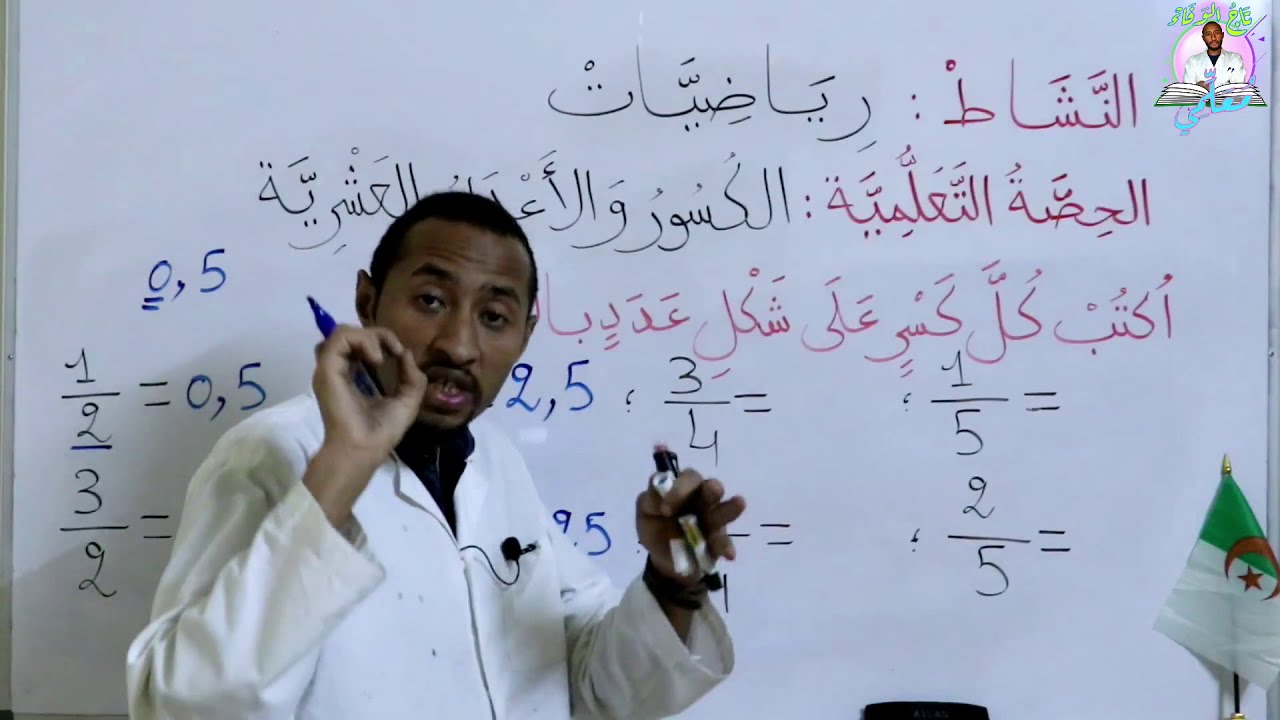 تَاجُ الوَفَاءِ
مُعَلِّمِي
النَّشَاطْ : رِيَاضِيَّاتْ
الحِصَّةُ التَّعَلُّمِيَّة : الكُسُورُ وَالأَعْدَادُ العَشْرِيَّة
0,5
اُكتُبْ كُلَّ كَسْرٍ عَلَى شَكْلِ عَدَدٍ
1/2 = 0,5 2,5 ؛ 3/4 = ؛ 1/5 =
3/2 = = ؛ 2/5 =